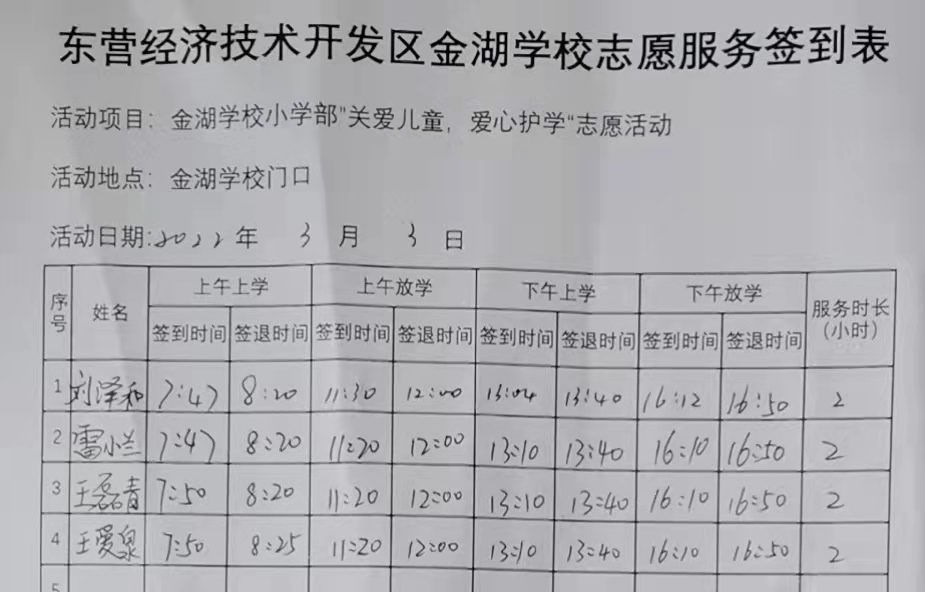 东营经济技术开发区金湖学校志愿服务签到表
活动项目：金湖学校小学部"关爱儿童，爱心护学"志愿活动
活动地点：金湖学校门口
活动日期:2022年 3 月 3 日
序号 姓名 上午上学 上午放学 下午上学 下午放学 服务时长（小时）
签到时间 签退时间 签到时间 签退时间 签到时间 签退时间 签到时间 签退时间
1 刘泽和 7:47 8:20 11:30 12:00 13:04 13:40 16:12 16:50 2
2 雷小兰 7:47 8:20 11:20 12:00 13:10 13:40 16:10 16:50 2
3 王磊青 7:50 8:20 11:20 12:00 13:10 13:40 16:10 16:50 2
4 王爱泉 7:50 8:25 11:20 12:00 13:10 13:40 16:10 16:50 2
5